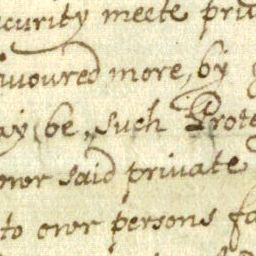 curity meete priu
iuoured more, by g
ay be, such Prote
owr said priuate
to owr persons fa